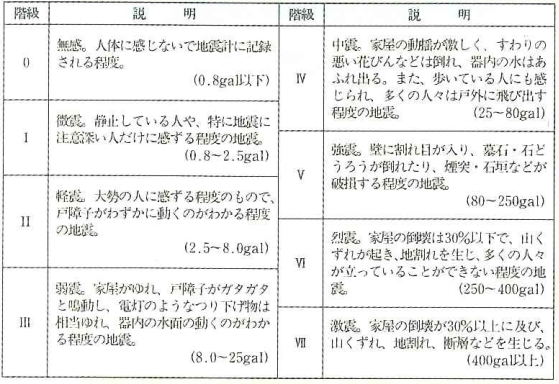 階級 説明
0
無感。人体に感じないで地震計に記録
される程度。
(0.8gal以下)
I
微震。静止している人や、特に地震に
注意深い人だけに感ずる程度の地震。
(0.8~2.5gal)
II
軽震。大勢の人に感ずる程度のもので、
戸障子がわずかに動くのがわかる程度
の地震。
(2.5~8.0gal)
III
弱震。家屋がゆれ、戸障子がガタガタ
と鳴動し、電灯のようなつり下げ物は
相当ゆれ、器内の水面の動くのがわか
る程度の地震。
(8.0~25gal)
階級 説明
IV
中震。家屋の動揺が激しく、すわりの
悪い花びんなどは倒れ、器内の水はあ
ふれ出る。また、歩いている人にも感
じられ、多くの人々は戸外に飛び出す
程度の地震。 (25~80gal)
V
強震。壁に割れ目が入り、墓石・石ど
うろうが倒れたり、煙突・石垣などが
破損する程度の地震。
(80~250gal)
VI
烈震。家屋の倒壊は30%以下で、山く
ずれが起き、地割れを生じ、多くの人々
が立っていることができない程度の地
震。 (250~400gal)
VII
激震。家屋の倒壊が30%以上に及び、
山くずれ、地割れ、断層などを生じる。
(400gal以上)